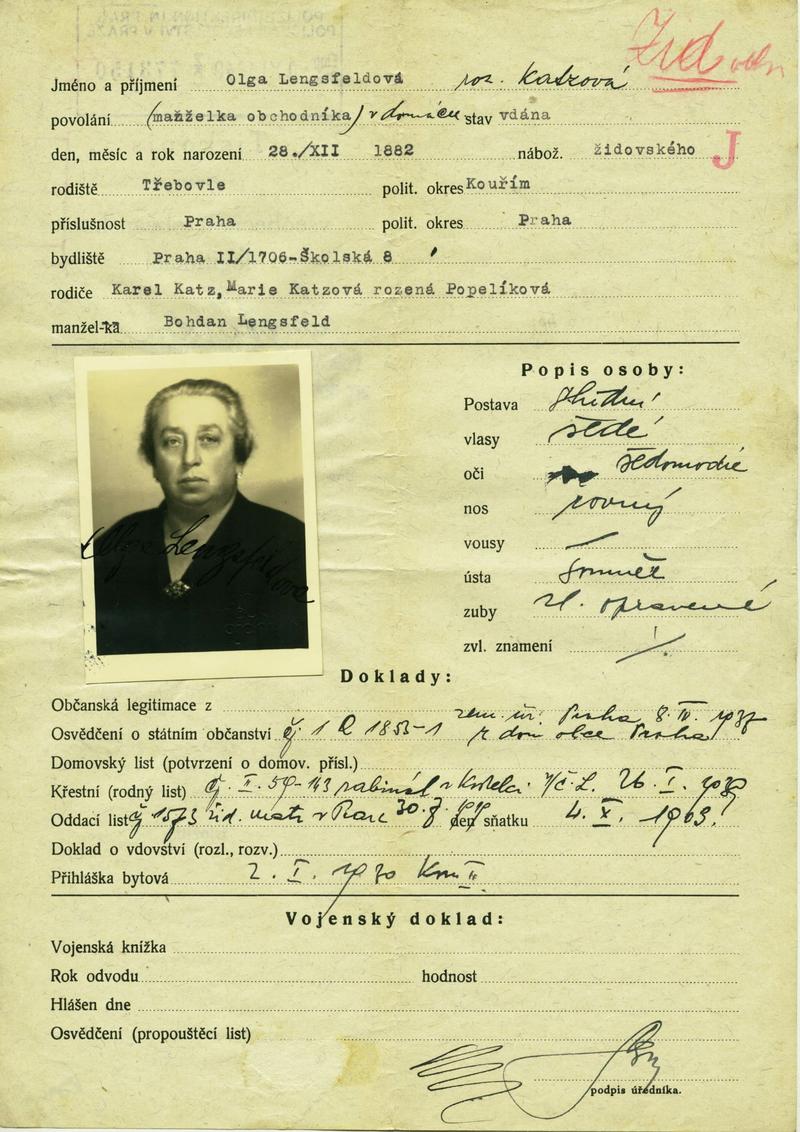 Žid
Jméno a příjmení Olga Lengsfeldová roz. Katzová
povolání (manželka obchodníka) v domácn. stav vdána
den, měsíc a rok narození 28./XII 1882 nábož. židovského J
rodiště Třebovle polit. okres Kouřím
příslušnost Praha polit. okres Praha
bydliště Praha II/1706-Školská 8
rodiče Karel Katz, Marie Katzová rozená Popelíková
manžel-ka Bohdan Lengsfeld
Popis osoby:
Postava
vlasy šedé
oči šedomodré
nos rovný
vousy —
ústa
zuby zl. opravené
zvl. znamení
Olga Lengsfeldová
Doklady:
Občanská legitimace z
zem. úř. Praha 8. IV. 1937
Osvědčení o státním občanství čj. 1 R 1853-1 z dom obce Praha
Domovský list (potvrzení o domov. přísl.)
Křestní (rodný list) čj. I. 59-143 rabinát v Kostelci n/Č.L. 26. I. 1939
Oddací list čj 1573 žid. matr v Praze 30. den sňatku 4. X. 1903.
Doklad o vdovství (rozl., rozv.)
Přihláška bytová 2. I. 1930 Kom II
Vojenský doklad:
Vojenská knížka
Rok odvodu hodnost
Hlášen dne
Osvědčení (propouštěcí list)
podpis úředníka.